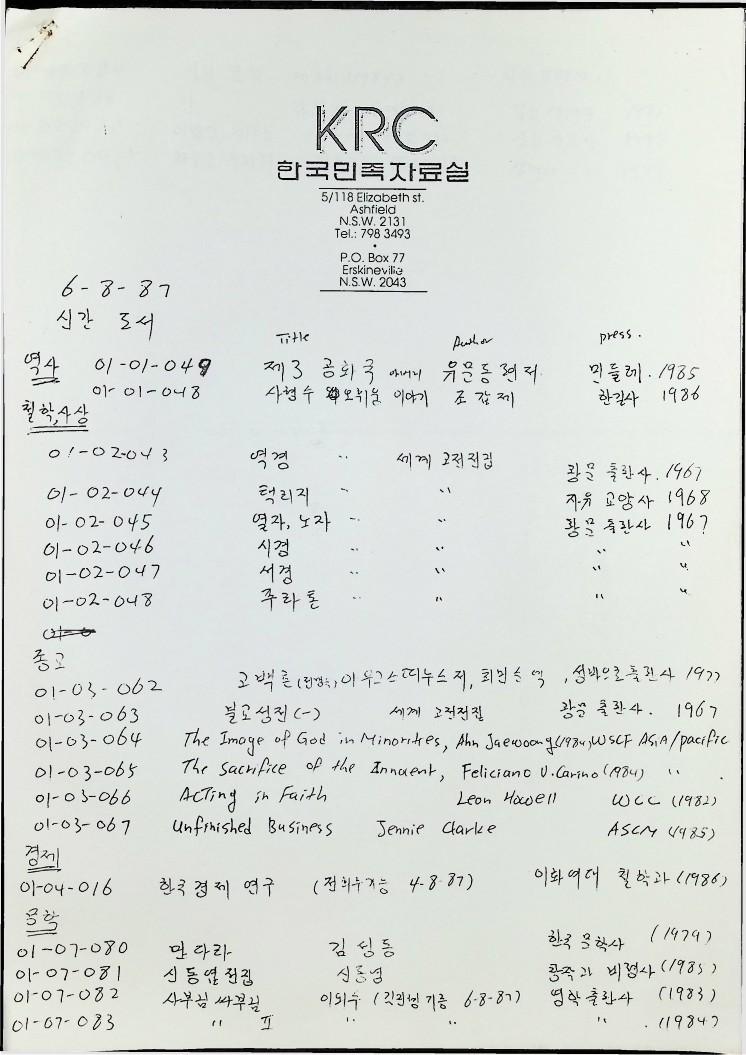 KRC
한국민족자료실
5/118 Elizabeth st.
Ashfield
N.S.W. 2131
Tel.: 798 3493
•
P.O. Box 77
Erskineville
N.S.W. 2043
6-8-87
신간 도서
Title Author press.
역사 01-01-049 제3 공화국 민들레. 1985
01-01-048 사형수 이야기 조갑제 한길사 1986
철학,사상
01-02-043 역경 " 세계 고전전집 광문 출판사. 1967
01-02-044 택리지 " " 자유 교양사 1968
01-02-045 열자, 노자 " " 광문 출판사 1967
01-02-046 시경 " " " "
01-02-047 서경 " " " "
01-02-048 플라톤 " " " "
종교
01-03-062 고백론 아우구스띠누스 저, 최민순 역, 성바오로출판사 1977
01-03-063 불교성전(-) 세계 고전전집 광문 출판사. 1967
01-03-064 The Image of God in Minorities, Ahn Jaewoong (1984) WSCF ASIA/pacific
01-03-065 The Sacrifice of the Innocent, Feliciano V. Carino (1984) " .
01-03-066 Acting in Faith Leon Howell WCC (1982)
01-03-067 Unfinished Business Jennie Clarke ASCM (1985)
경제
01-04-016 한국경제 연구 4-8-87) 이화여대 철학과 (1986)
문학
01-07-080 만다라 김성동 한국 문학사 (1979)
01-07-081 신동엽전집 신동엽 창작과 비평사 (1985)
01-07-082 사부님 싸부님 이외수 6-8-87) 영학출판사 (1983)
01-07-083 " II " " " . (1984)